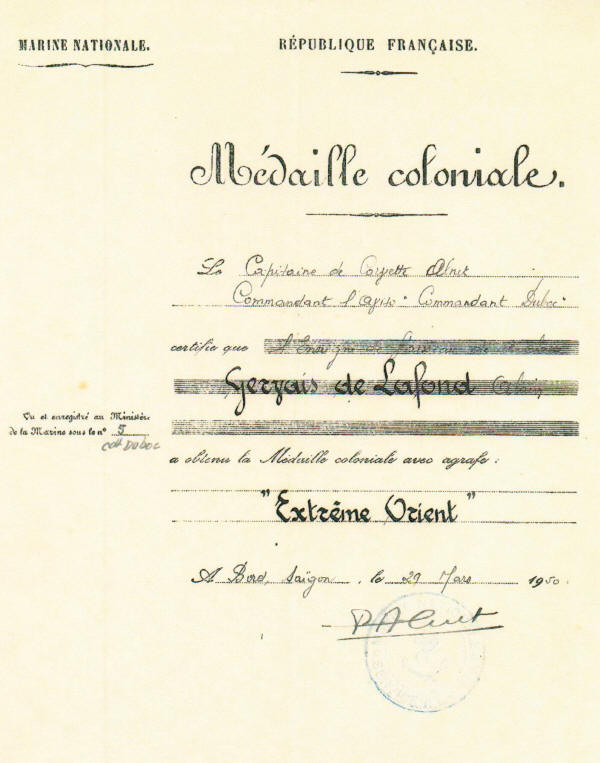 MARINE NATIONALE.
RÉPUBLIQUE FRANÇAISE.
Médaille coloniale.
Le Capitaine de Corvette
Commandant l'Aviso "Commandant Duboc"
certifie que L'Enseigne de Vaisseau de
Gervais de Lafond
Vu et enregistré au Ministère
de la Marine sous le nº 5
Cdt Duboc
a obtenu la Médaille coloniale avec agrafe :
"Extrême Orient"
A Bord, Saïgon, le 29 Mars 1950.